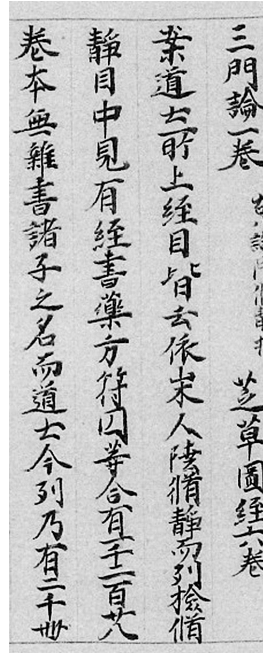 三門論一卷 芝草圖經六卷
案道士所上經目皆云依宋人陸脩靜而列撿脩
靜目中見有經書藥方符圖等合有一千二百廿八
卷本無雜書諸子之名而道士今列乃有二千卌